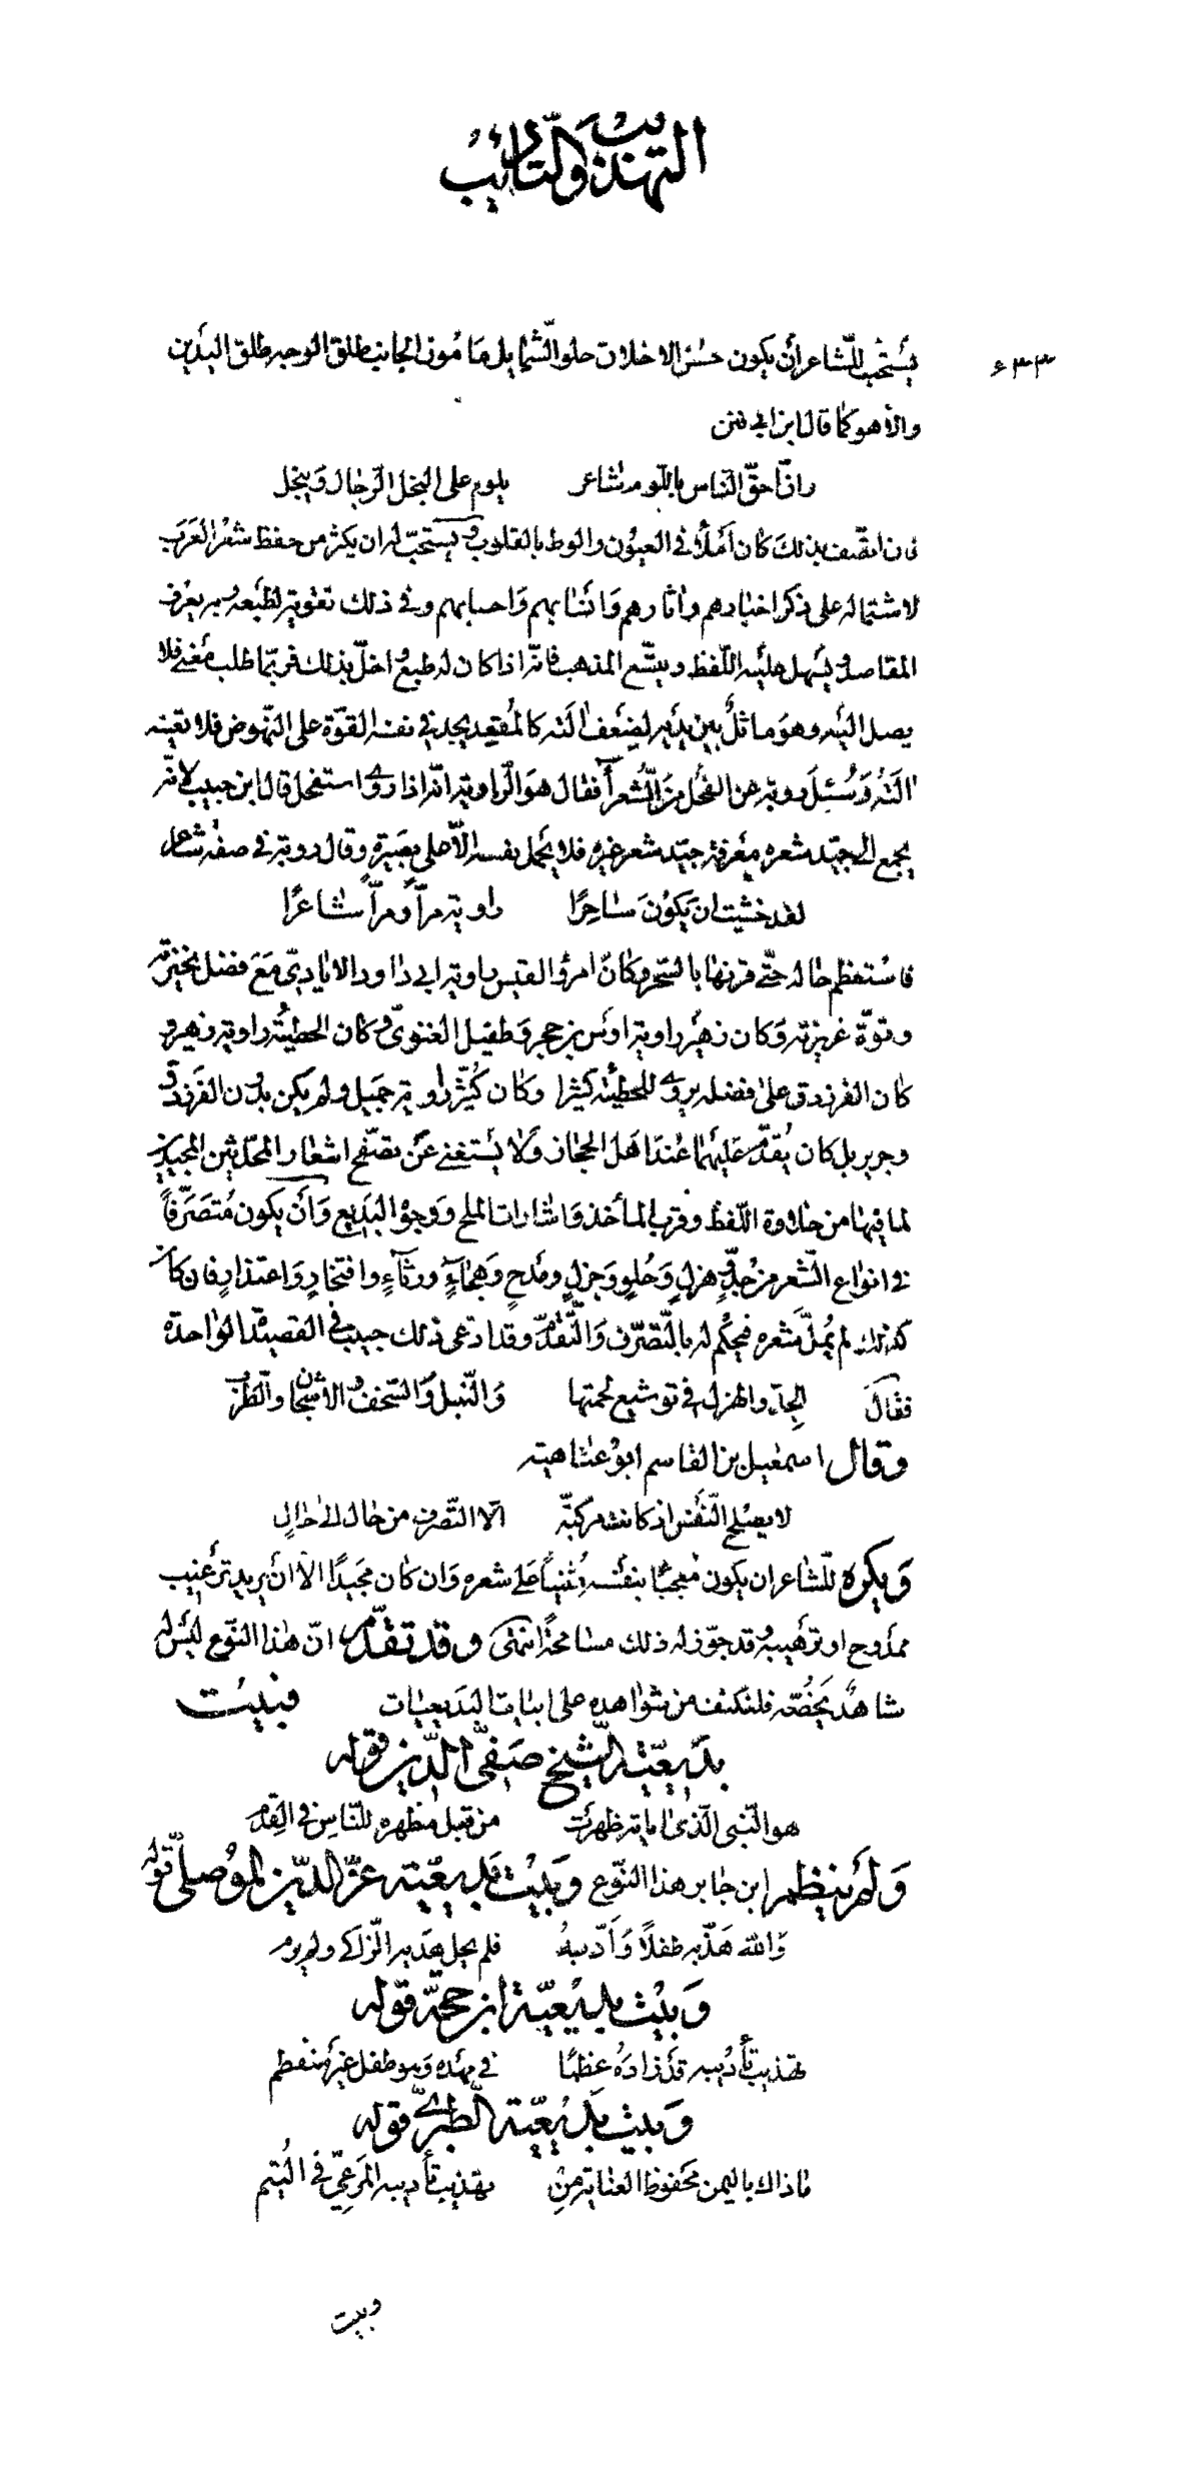 التهذيب والتأديب
٤٣٣
يستحب للشاعر أن يكون حسن الاخلاق حلو الشمايل مأمون الجانب طلق الوجه طلق اليدين
والا هو كما قال ابن ابي فنن
وانّ احقّ النّاس باللّوم شاعر يلوم على البخل الرّجال ويبخل
فان اتّصف بذلك كان أهلاً في العيون والوط بالقلوب ويستحبّ له ان يكثر من حفظ شعر العرب
لاشتماله على ذكر اخبارهم واثارهم وانسابهم واحسابهم وفي ذلك تقوية لطبعه وبه يعرف
المقاصد ويسهل عليه اللّفظ ويتّسع المذهب فانّه اذا كان له طبع واخلّ بذلك فربّما طلب معنى فلا
يصل اليه وهو ماثل بين يديه لضعف الته كالمقعد يجد في نفسه القوّة على النّهوض فلا تعينه
الته وسئل روبة عن الفحل من الشّعرأ فقال هو الرّاوية انّه اذا روى استفحل قال ابن حبيب لانّه
يجمع الى جيّد شعره معرفة جيّد شعر غيره فلا يحمل نفسه الّا على بصيرة وقال روبة في صفة شاعر
لقد خشيت ان يكون ساحرًا راوية مرّاً ومرّاً شاعرًا
فاستعظم حاله حتّى قرنها بالسّحر وكان امرؤ القيس راوية ابي داود الايادي مع فضل نحيزته
وقوّة غريزته وكان زهير راوية اوس بن حجر وطفيل الغنوي وكان الحطيئة راوية زهير و
كان الفرزدق على فضله يروى للحطيئة كثيرا وكان كثيّر راوية جميل ولم يكن بدون الفرزدق
وجرير بل كان يقدّم عليهما عند اهل الحجاز ولا يستغنى عن تصفّح اشعار المحدّثين المجيدين
لما فيها من حلاوة اللّفظ وقرب المأخذ واشارات الملح ووجوه البديع وأن يكون متصرّفاً
في انواع الشّعر من جدّ وهزل وحلو وجزل ومدح وهجاء ورثاء وافتخار واعتذار فان كان
كذلك لم يملّ شعره فيحكم له بالتّصرّف والتّقدّم وقد ادّعى ذلك حبيب في القصيدة الواحدة
فقال الجدّ والهزل في توشيع لحمتها والنّبل والسّخف والاشجان والطّرب
وقال اسمعيل بن القاسم ابو عتاهيته
لا يصلح النّفس اذ كانت مركّبة الّا التّصرف من حال الى حال
ويكره للشّاعر ان يكون معجبًا بنفسه مثنياً على شعره وان كان مجيدًا الّا أن يريد ترغيب
ممدوح او ترهيبه وقد جوّز له ذلك مسامحةً انتهى وقد تقدّم انّ هذا النّوع ليس له
شاهد يخصّه فلنكتف من شواهده على ابيات البديعيات فبيت
بديعيّة الشّيخ صفيّ الدّين قوله
هو النّبي الّذي اياته ظهرت من قبل مظهره للنّاس في القدم
ولم ينظم ابن جابر هذا النّوع وبيت بديعيّة عزّ الدّين الموصلّي قوله
والله هذّبه طفلاً وأدّبه فلم يحل هديه الزّاكي ولم يرم
وبيت بديعيّة ابن حجّة قوله
تهذيب تأديبه قد زاده عظمًا في مهده وهو طفل غير منفطم
وبيت بديعيّة الطّبري قوله
ماذاك باليمن محفوظ العناية من تهذيب تأديبه المرعيّ في اليتم
وبيت